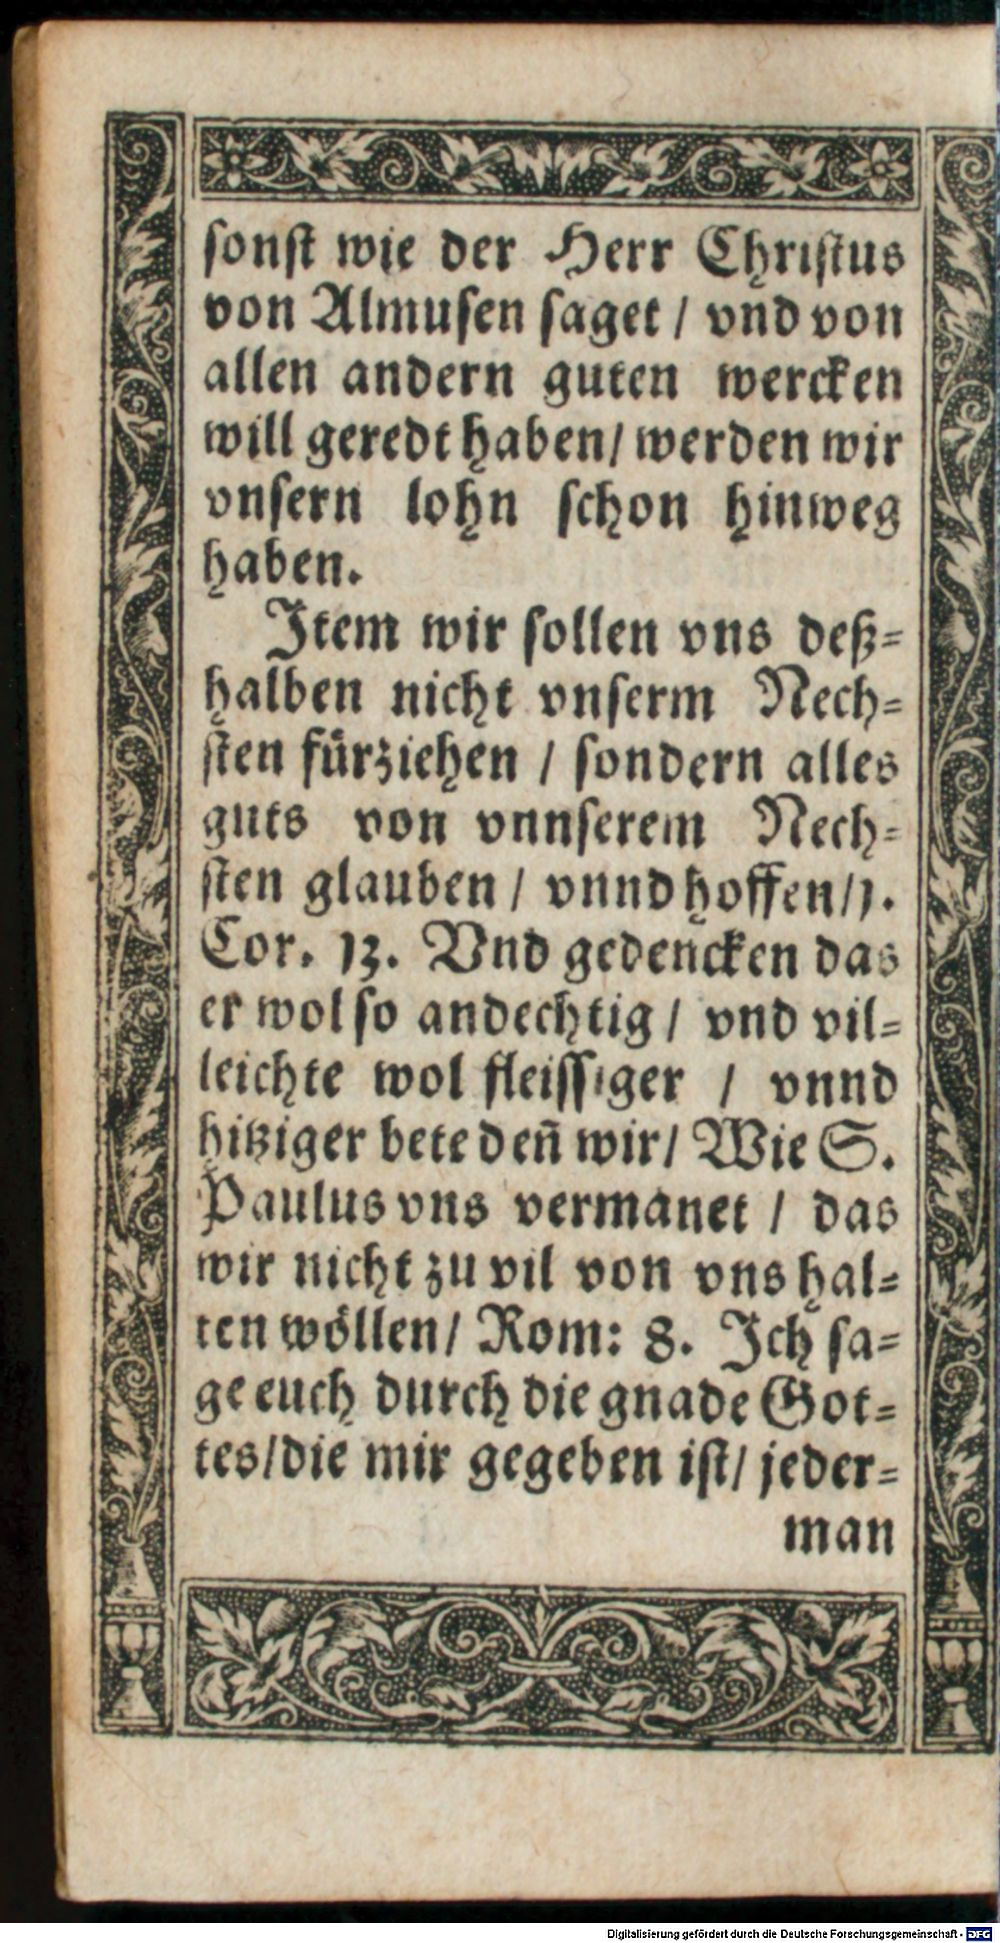 sonst wie der Herr Christus
von Almusen saget / vnd von
allen andern guten wercken
will geredt haben / werden wir
vnsern lohn schon hinweg
haben.
Item wir sollen vns deß=
halben nicht vnserm Nech=
sten fürziehen / sondern alles
guts von vnnserem Nech=
sten glauben / vnnd hoffen / 1.
Cor. 13. Vnd gedencken das
er wol so andechtig / vnd vil=
leichte wol fleissiger / vnnd
hitziger bete deñ wir / Wie S.
Paulus vns vermanet / das
wir nicht zu vil von vns hal=
ten wöllen / Rom: 8. Ich sa=
ge euch durch die gnade Got=
tes / die mir gegeben ist / jeder=
man
Digitalisierung gefördert durch die Deutsche Forschungsgemeinschaft - DFG